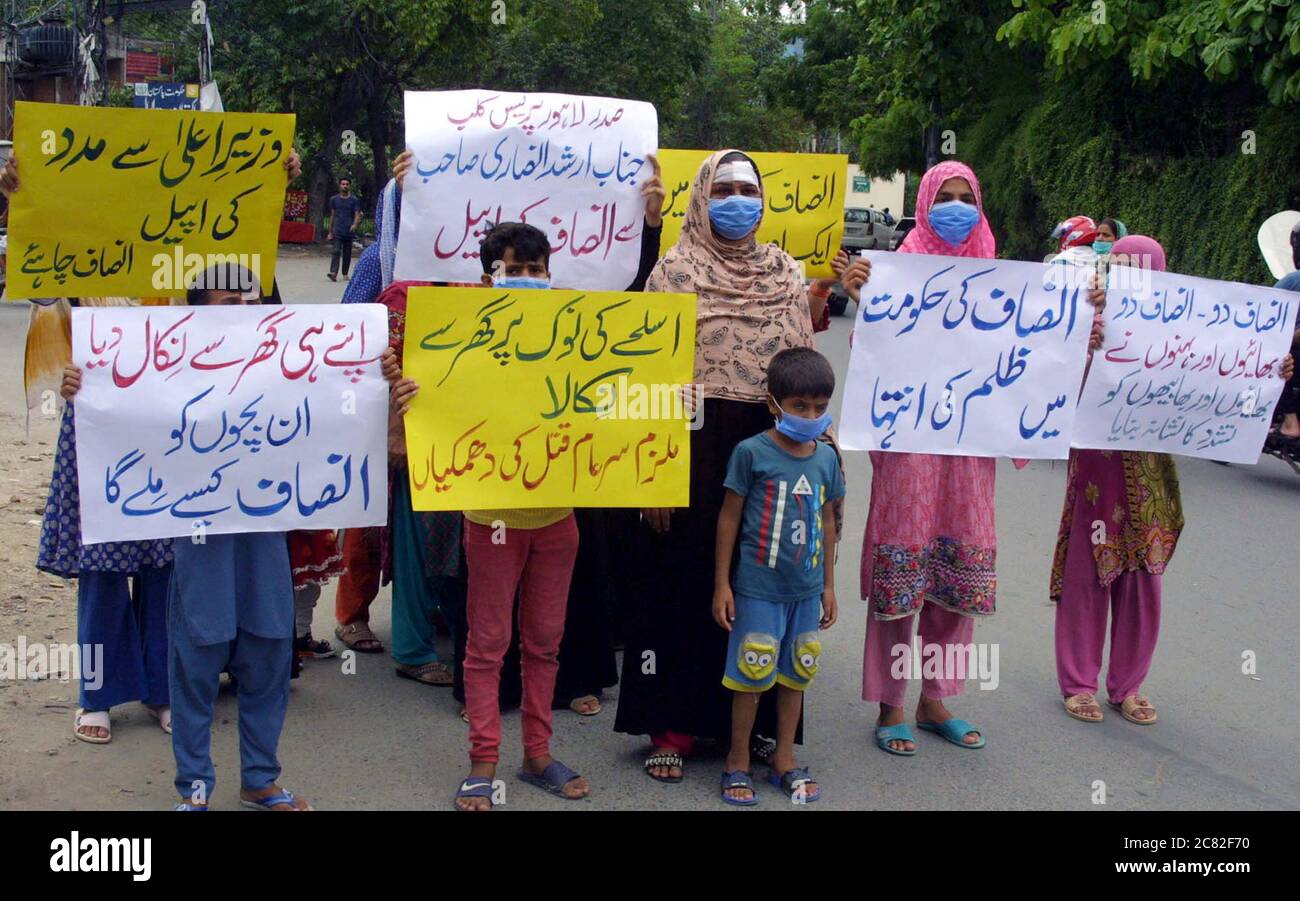 وزیراعلیٰ سے مدد
کی اپیل
انصاف چاہئے
صدر لاہور پریس کلب
جناب ارشد انصاری صاحب
سے انصاف کی اپیل
انصاف
ایک
اپنے ہی گھر سے نکال دیا
ان بچوں کو
انصاف کیسے ملے گا
اسلحے کی نوک پر گھر سے
نکالا
ملزم سرعام قتل کی دھمکیاں
انصاف کی حکومت
میں ظلم کی انتہا
انصاف دو - انصاف دو
بھائیوں اور بہنوں نے
بھائیوں اور بھابیھوں کو
تشدد کا نشانہ بنایا
حکومت پاکستان
alamy
Image ID: 2C82F70
www.alamy.com